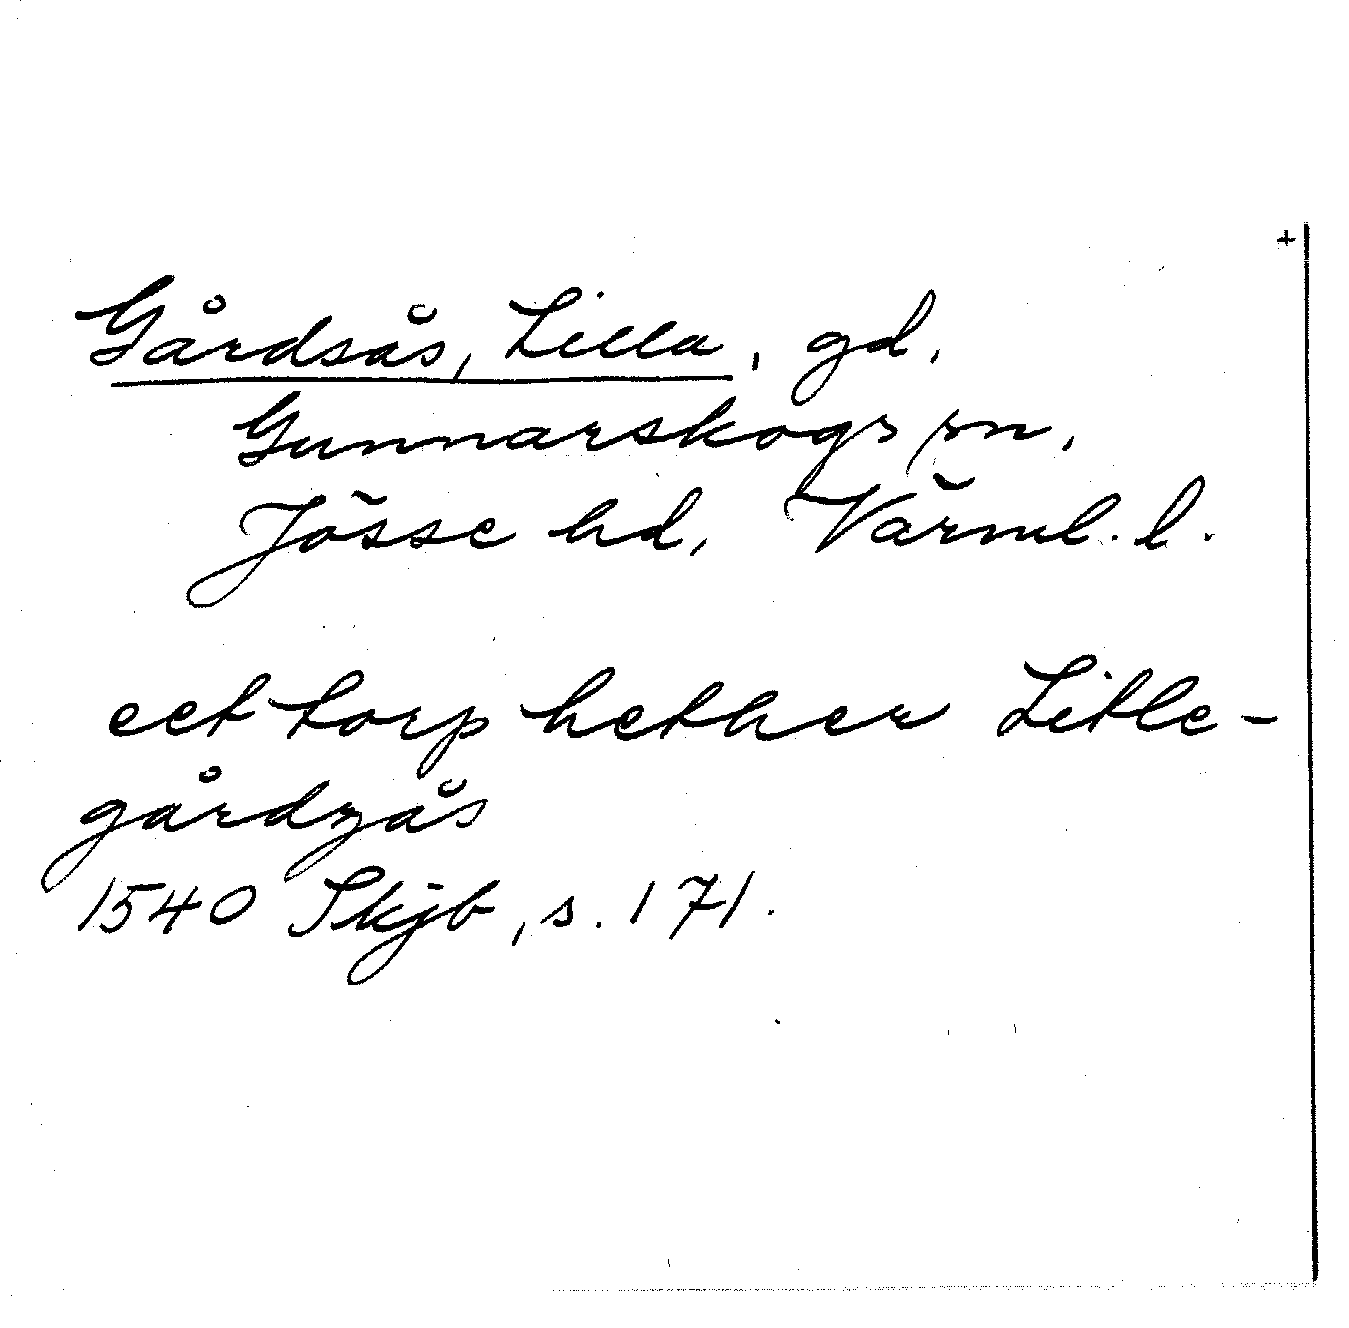 +
Gårdsås, Lilla, gd,
Gunnarskogs sn,
Jösse hd, Värml. l.
eet torp hether Litle-
gårdzås
1540 Skjb, s. 171.